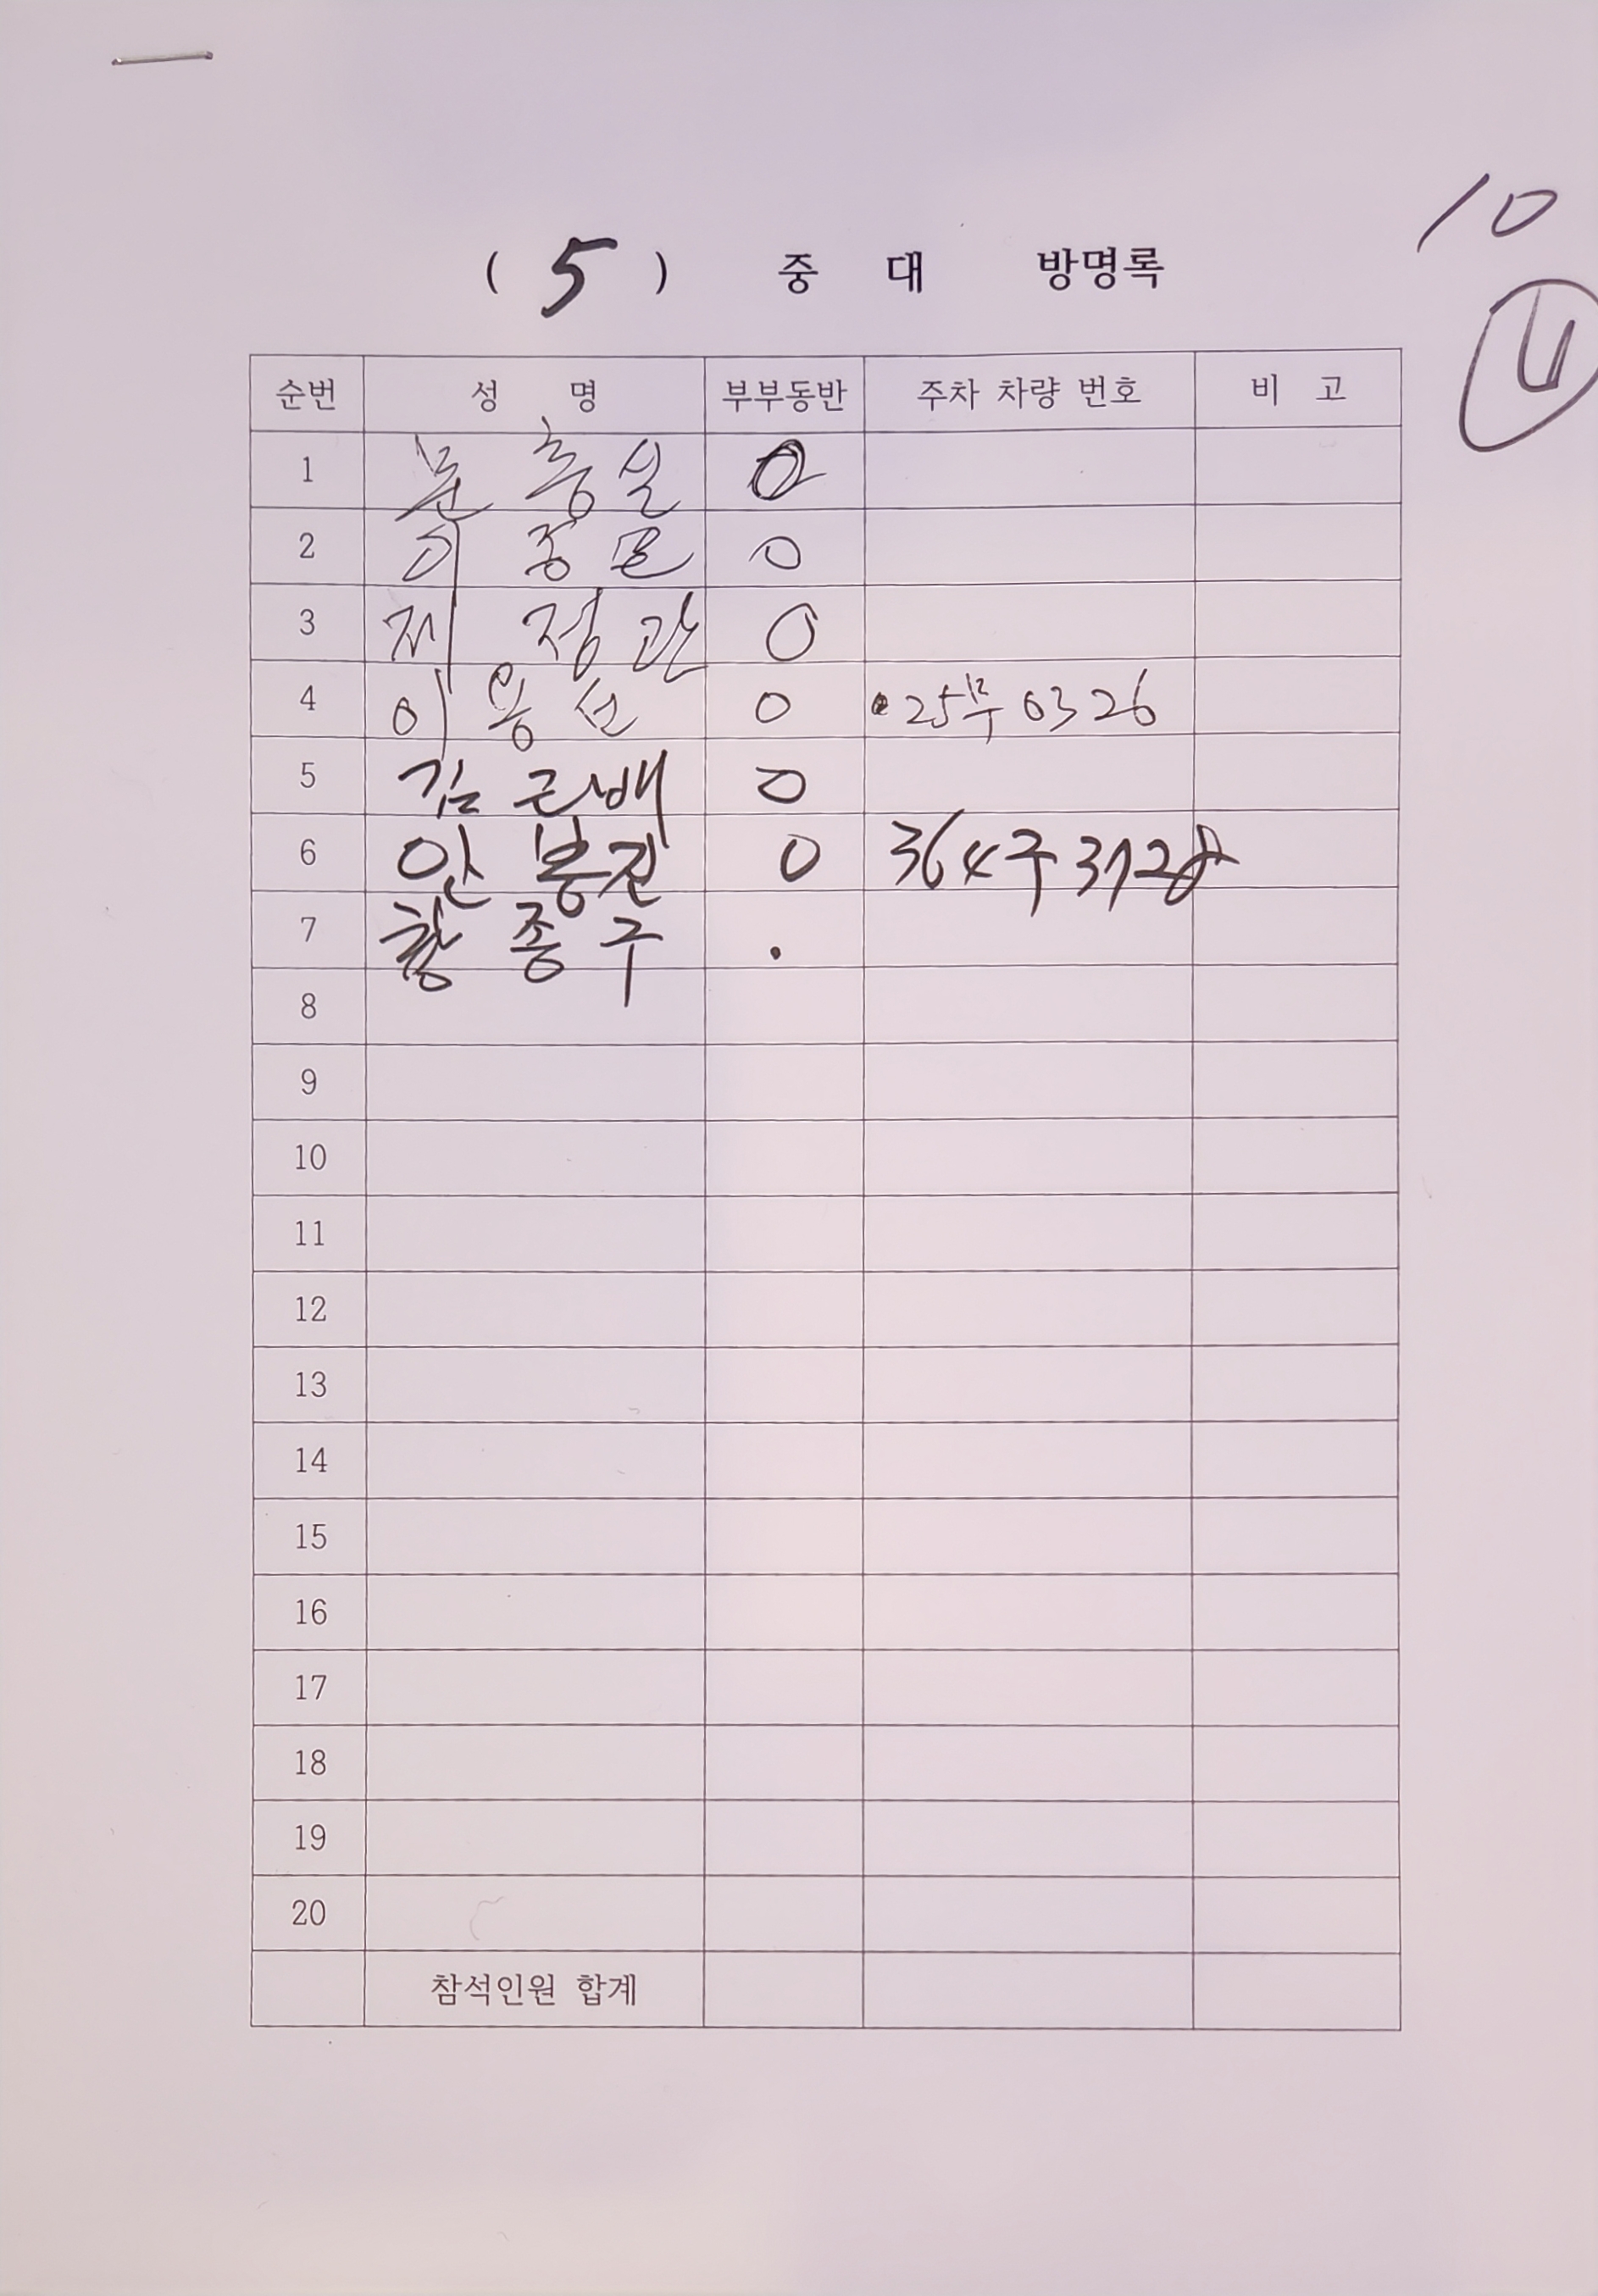 10
( 5 ) 중 대 방명록
순번 성 명 부부동반 주차 차량 번호 비 고
1 문 충실 0
2 이 종문 0
3 제 정관 0
4 이 용선 0 25부 0326
5 김 근배 0
6 안 봉진 0 364구 3728
7 황 종구 .
8
9
10
11
12
13
14
15
16
17
18
19
20
참석인원 합계